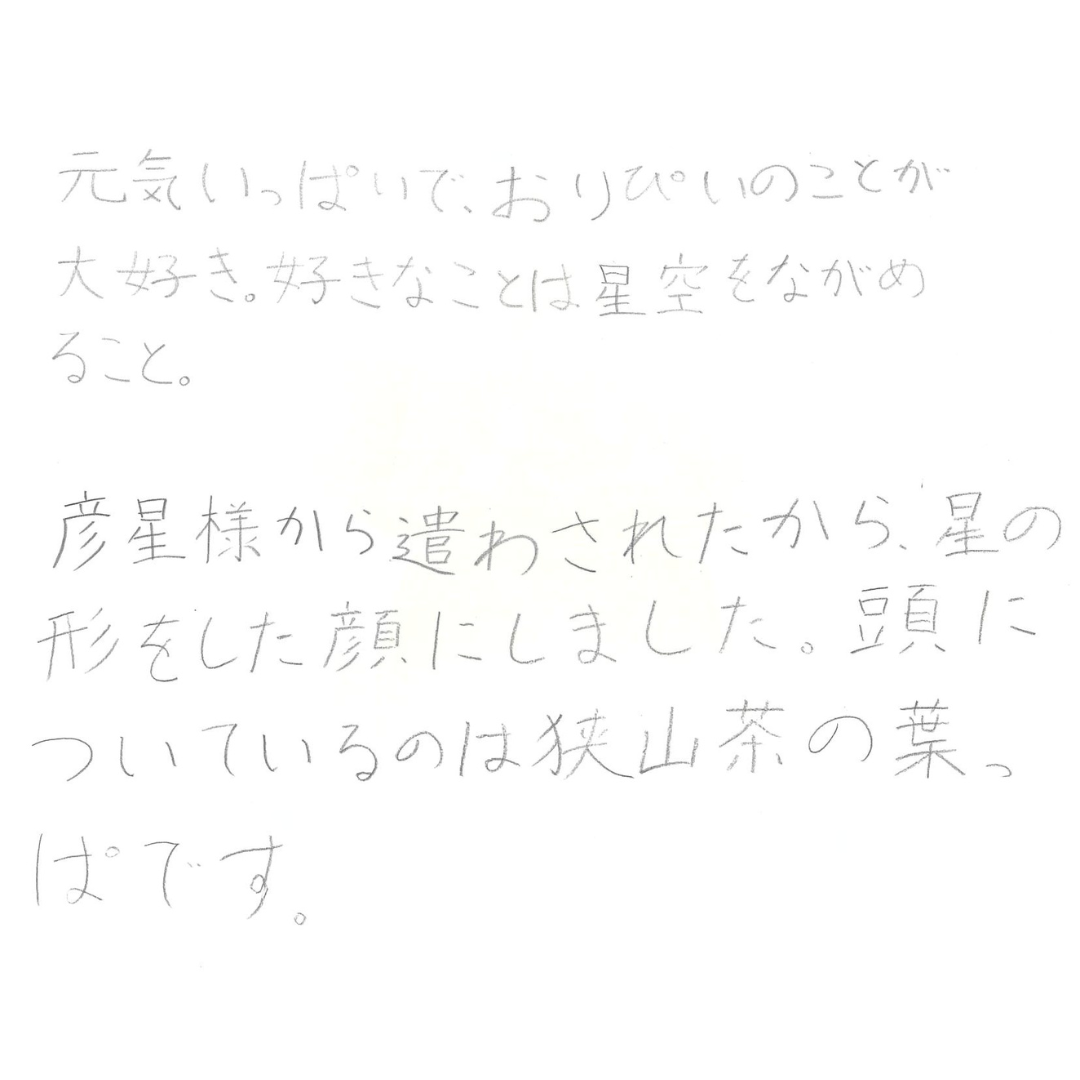 元気いっぱいで、おりぴいのことが
大好き。好きなことは星空をながめ
ること。
彦星様から遣わされたから、星の
形をした顔にしました。頭に
ついているのは狭山茶の葉っ
ぱです。